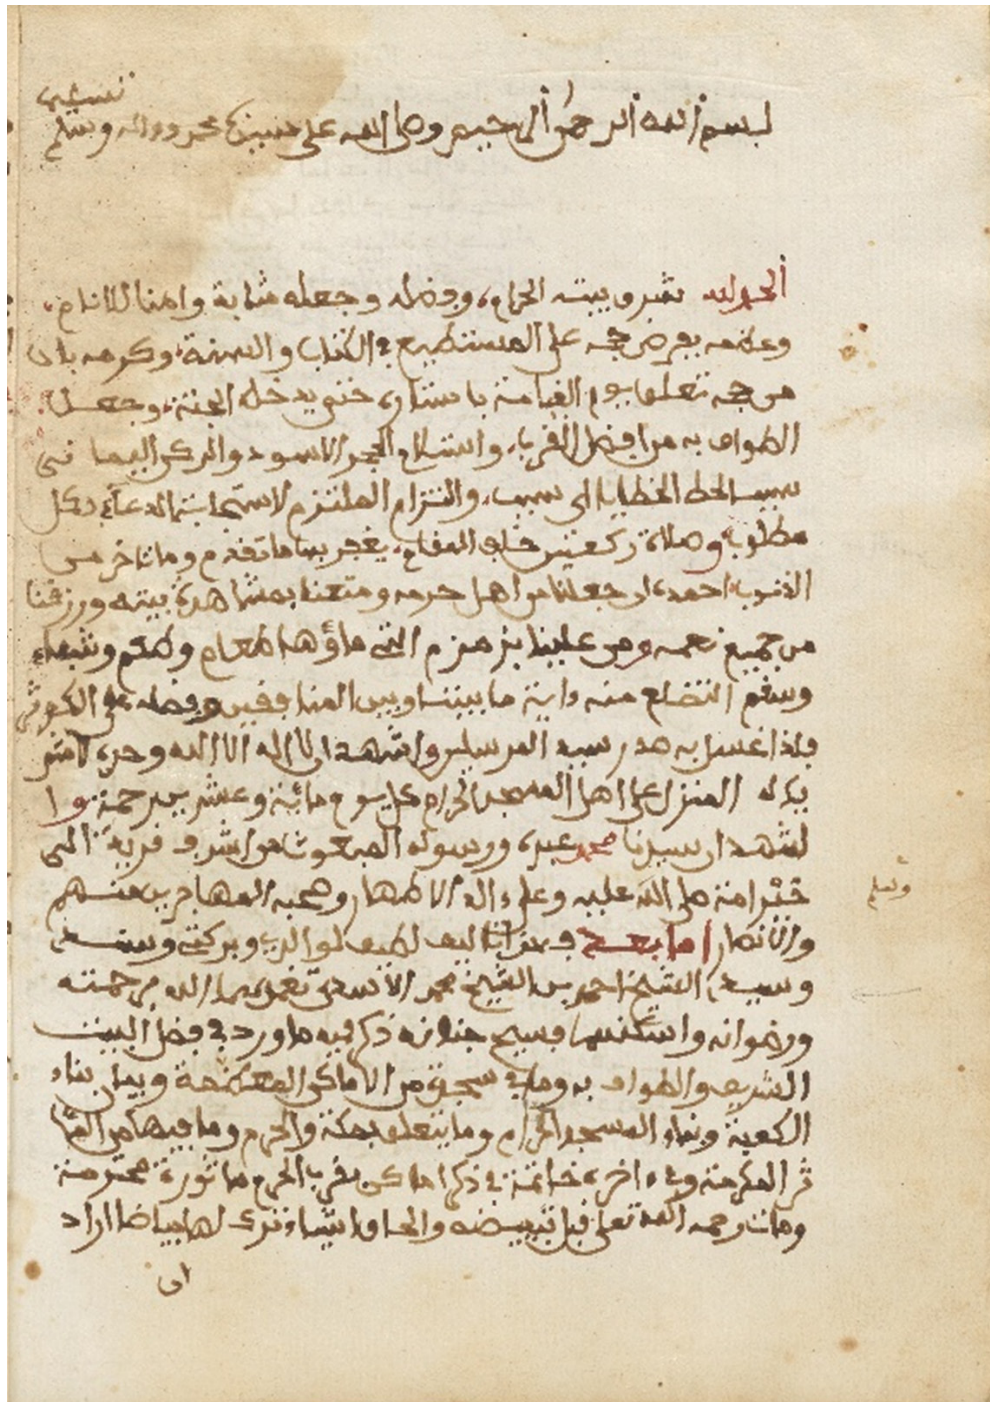 بسم الله الرحمن الرحيم وصلى الله على نبينا محمد وءاله وسلم
تسليما
الحمد لله شرف بيته الحرام، وفضله وجعله مثابة وامنا للانام،
وعظمه بفرض حجه على المستطيع في الكتاب والسنة، وكرمه بان
من حجه تعلق يوم القيامة باستاره حتى يدخل الجنة، وجعل
الطواف به من افضل القرب، واستلام الحجر الاسود والركن اليماني
سبب الحط الخطايا اى سبب، والتزام الملتزم لاستجابة الدعاء بكل
مطلوب وصلاة ركعتين خلف المقام، يغفر بها ما تقدم وما تاخر من
الذنوب احمده ان جعلنا من اهل حرمه ومتعنا بمشاهدة بيته ورزقنا
من جميع نعمه ومن علينا بزمزم التي ماؤها طعام وطعم وشفاء
وسقم التضلع منه ءاية ما بيننا وبين المنافقين وفضله على الكوثر
فلذا غسل به صدر سيد المرسلين واشهد ان لا اله الا الله وحده لا شر
يك له المنزل على اهل المسجد الحرام كل يوم مائة وعشرين رحمة وا
شهد ان سيدنا محمد عبده ورسوله المبعوث من اشرف قرية الى
خير امة صلى الله عليه وعلى ءاله الاطهار وصحبه المهاجرين منهم
وسلم
والانصار اما بعد فهذا تاليف لطيف لوالدي وبركتي وسندي
وسيدي الشيخ احمد بن الشيخ محمد الاسدي تغمدهما الله برحمته
ورضوانه واسكنهما فسيح جنانه ذكر فيه ما ورد في فضل البيت
الشريف والطواف به وما في من الاماكن المعظمة وبيان بناء
الكعبة وبناء المسجد الحرام وما يتعلق بمكة والحرم وما فيها من المئا
ثر المكرمة وفي ءاخره خاتمة في ذكر اماكن بقرب الحرم ماثورة محترمة
ومات رحمه الله تعلى قبل تبييضه والحاق اشياء ترك لها بياضا اراد
ان